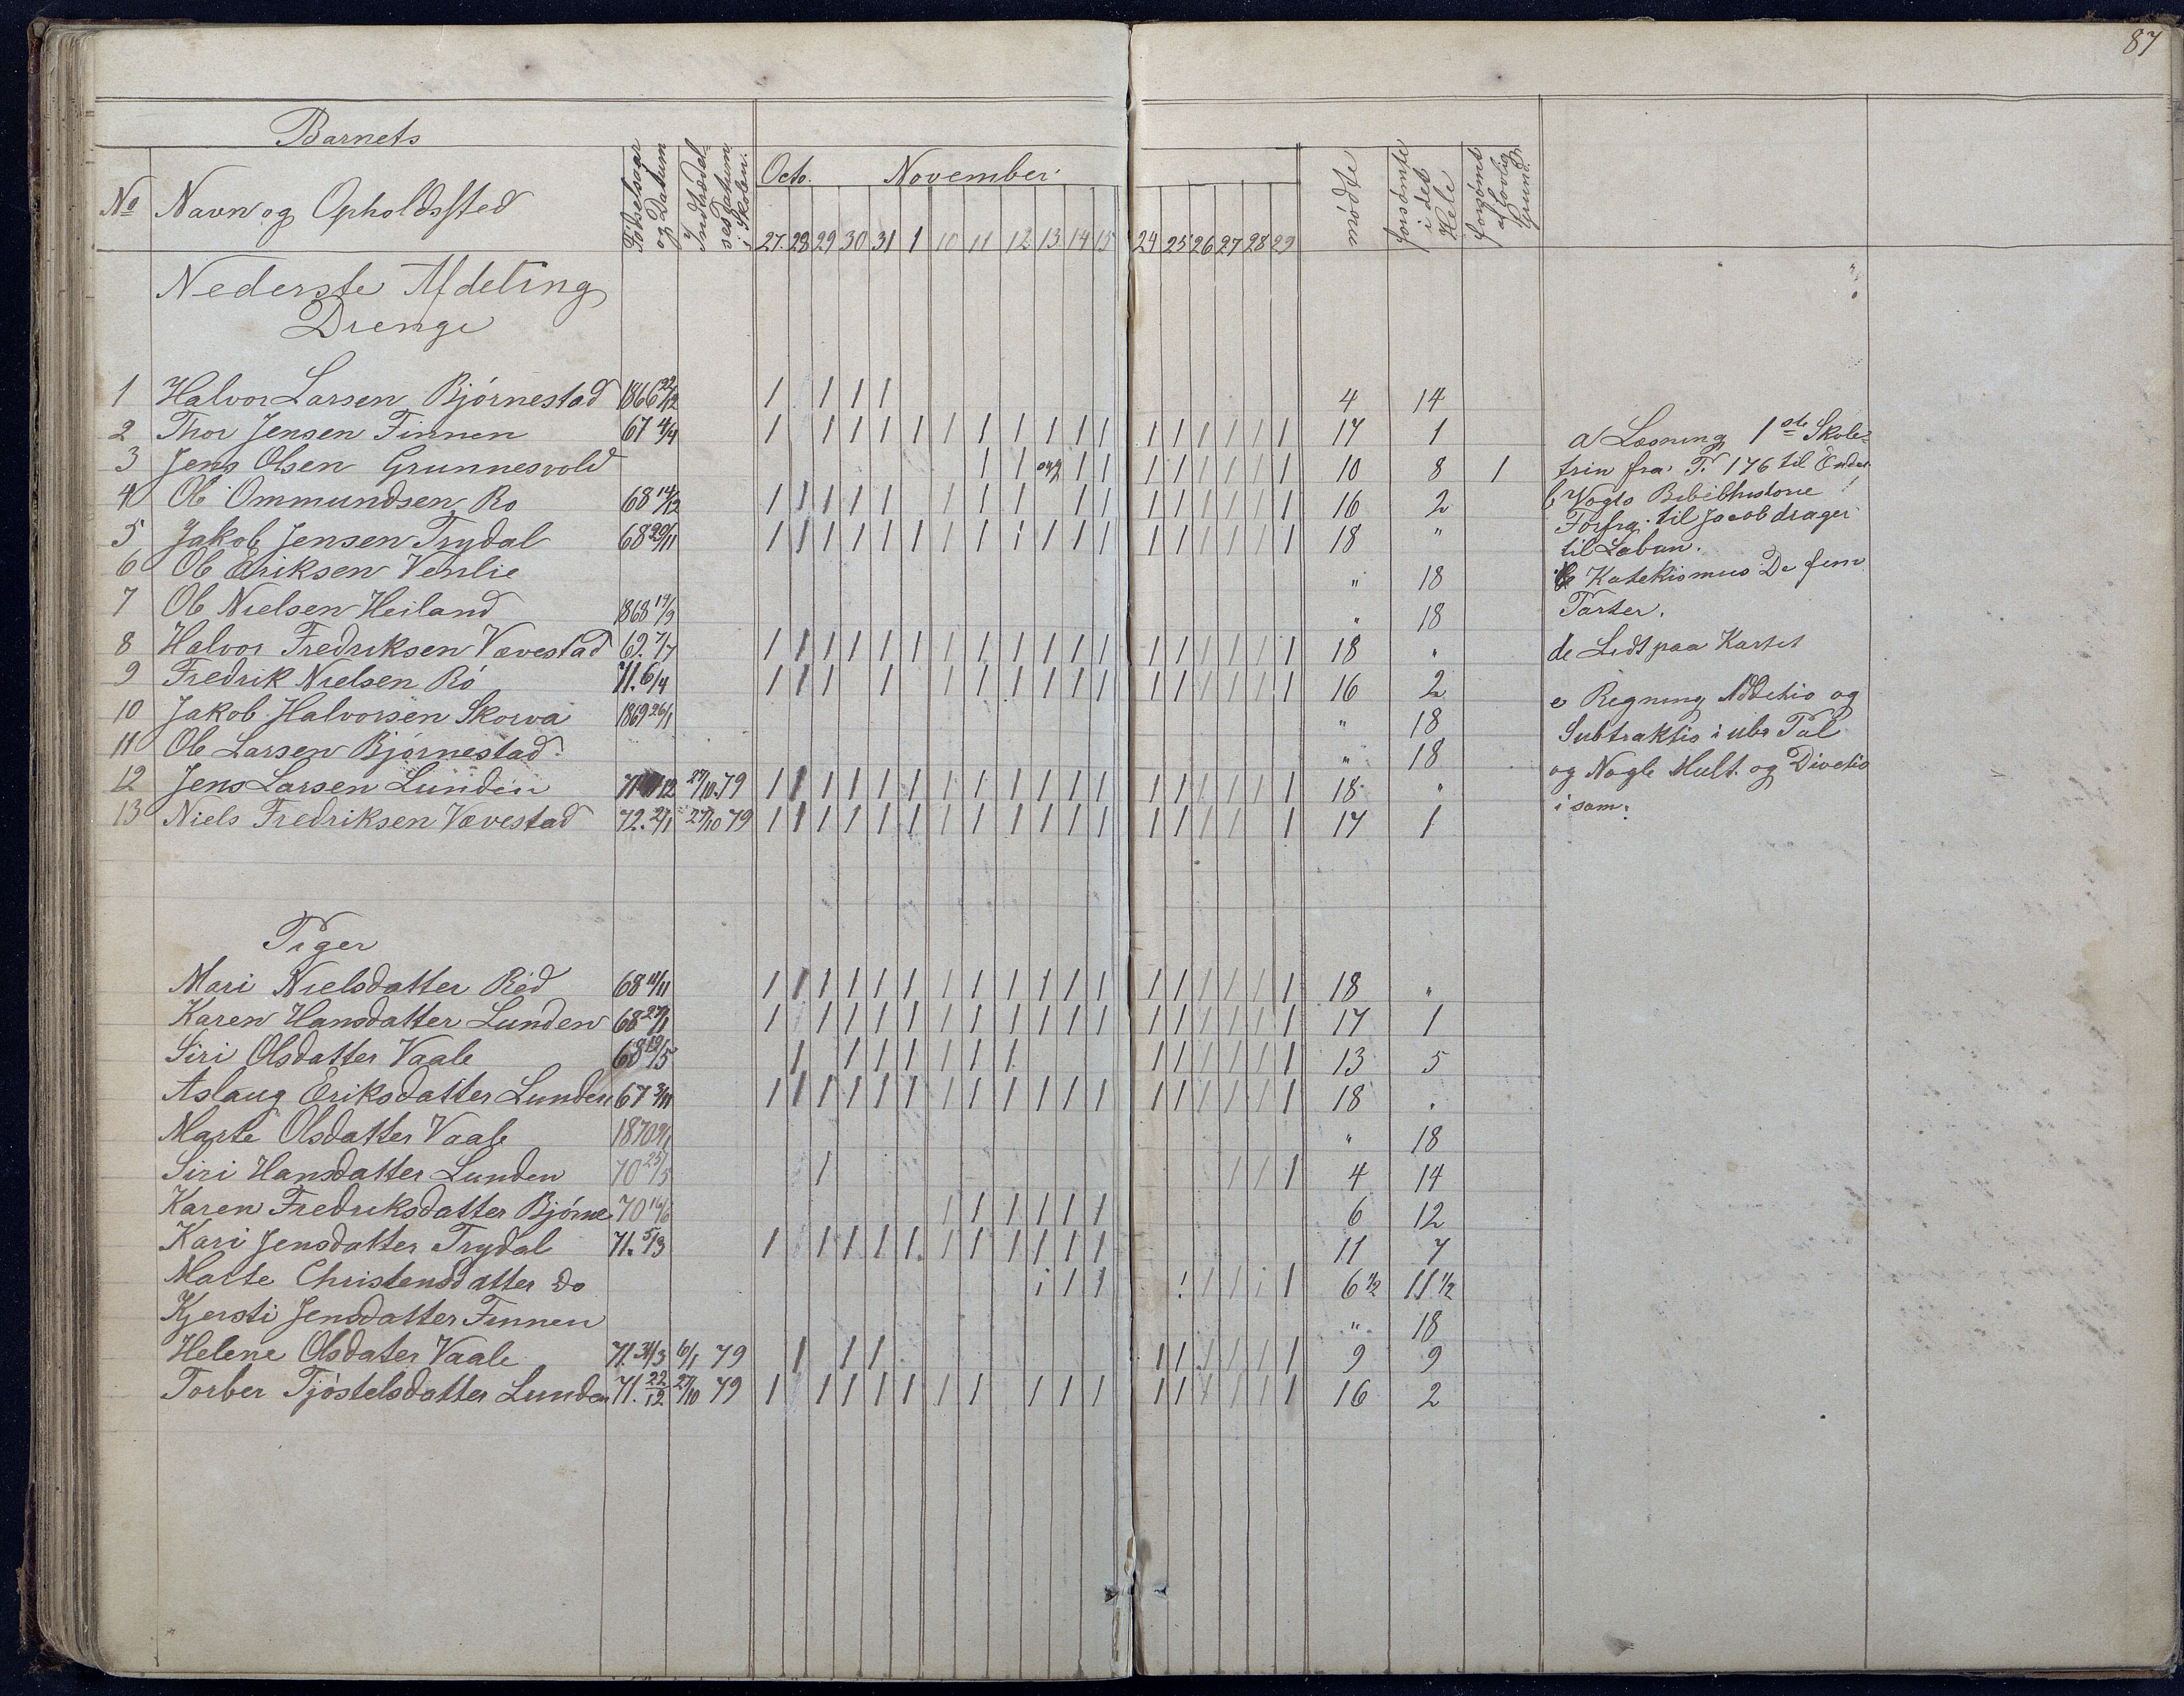 87
Barnets
No Navn og Opholdssted Födselsaar og Datum Indtrædelses Datum i Skolen. Octo. November mödte forsömte i det Hele forsömt af lovlig Grund.
27. 28 29 30 31 1 10 11 12 13 14 15 24 25 26 27 28 29
Nederste Afdeling
Drenge
1 Halvor Larsen Bjørnestad 1866 22/12 1 1 1 1 4 14
2 Thor Jensen Finnen 67 4/4 1 1 1 1 1 1 1 1 1 1 1 1 1 1 1 1 1 17 1
3 Jens Olsen Grunnesvold 1 1 syg 1 1 1 1 1 1 1 1 10 8 1
4 Ole Ommundsen Ro 68 14/12 1 1 1 1 1 1 1 1 1 1 1 1 1 1 1 1 16 2
5 Jakob Jensen Trydal 68 29/11 1 1 1 1 1 1 1 1 1 1 1 1 1 1 1 1 1 1 18 "
6 Ole Eriksen Venlie " 18
7 Ole Nielsen Heiland 1868 19/9 " 18
8 Halvor Fredriksen Vævestad 69. 7/7 1 1 1 1 1 1 1 1 1 1 1 1 1 1 1 1 1 1 18 "
9 Fredrik Nielsen Rö 71. 6/4 1 1 1 1 1 1 1 1 1 1 1 1 1 1 1 1 16 2
10 Jakob Halvorsen Skorva 1869 26/1 " 18
11 Ole Larsen Bjørnestad " 18
12 Jens Larsen Lunden 71 12 27/10. 79 1 1 1 1 1 1 1 1 1 1 1 1 1 1 1 1 1 1 18 "
13 Niels Fredriksen Vævestad 72. 2/1 27/10 79 1 1 1 1 1 1 1 1 1 1 1 1 1 1 1 1 1 17 1
a Læsning 1ste Skole-
trin fra P. 176 til Enden
b Vogts Bibelhistorie
Forfra til Jacob drager
til Laban.
c Katekismus De fem
Parter.
d Lidt paa Kartet
e Regning Addetio og
Subtraktio i ube Tal
og Nogle Mult. og Divetio
i sam:
Piger
Mari Nielsdatter Röd 68 11/11 1 1 1 1 1 1 1 1 1 1 1 1 1 1 1 1 1 1 18 "
Karen Hansdatter Lunden 68 27/1 1 1 1 1 1 1 1 1 1 1 1 1 1 1 1 1 1 17 1
Siri Olsdatter Vaale 68 19/5 1 1 1 1 1 1 1 1 1 1 1 1 1 13 5
Aslaug Eriksdatter Lunden 67 3/11 1 1 1 1 1 1 1 1 1 1 1 1 1 1 1 1 1 1 18 "
Marte Olsdatter Vaale 1870 " 18
Siri Hansdatter Lunden 70 25/5 1 1 1 1 4 14
Karen Fredriksdatter Bjørne 70 16/6 1 1 1 1 1 1 6 12
Kari Jensdatter Trydal 71. 5/3 1 1 1 1 1 1 1 1 1 1 1 11 7
Marte Christensdatter do 1 1 1 1 1 1 1 1 6 1/2 11 1/2
Kjersti Jensdatter Finnen " 18
Helene Olsdater Vaale 71. 31/3 6/1 79 1 1 1 1 1 1 1 1 1 9 9
Torber Tjöstelsdatter Lunden 71. 22/12 27/10 79 1 1 1 1 1 1 1 1 1 1 1 1 1 1 1 1 16 2